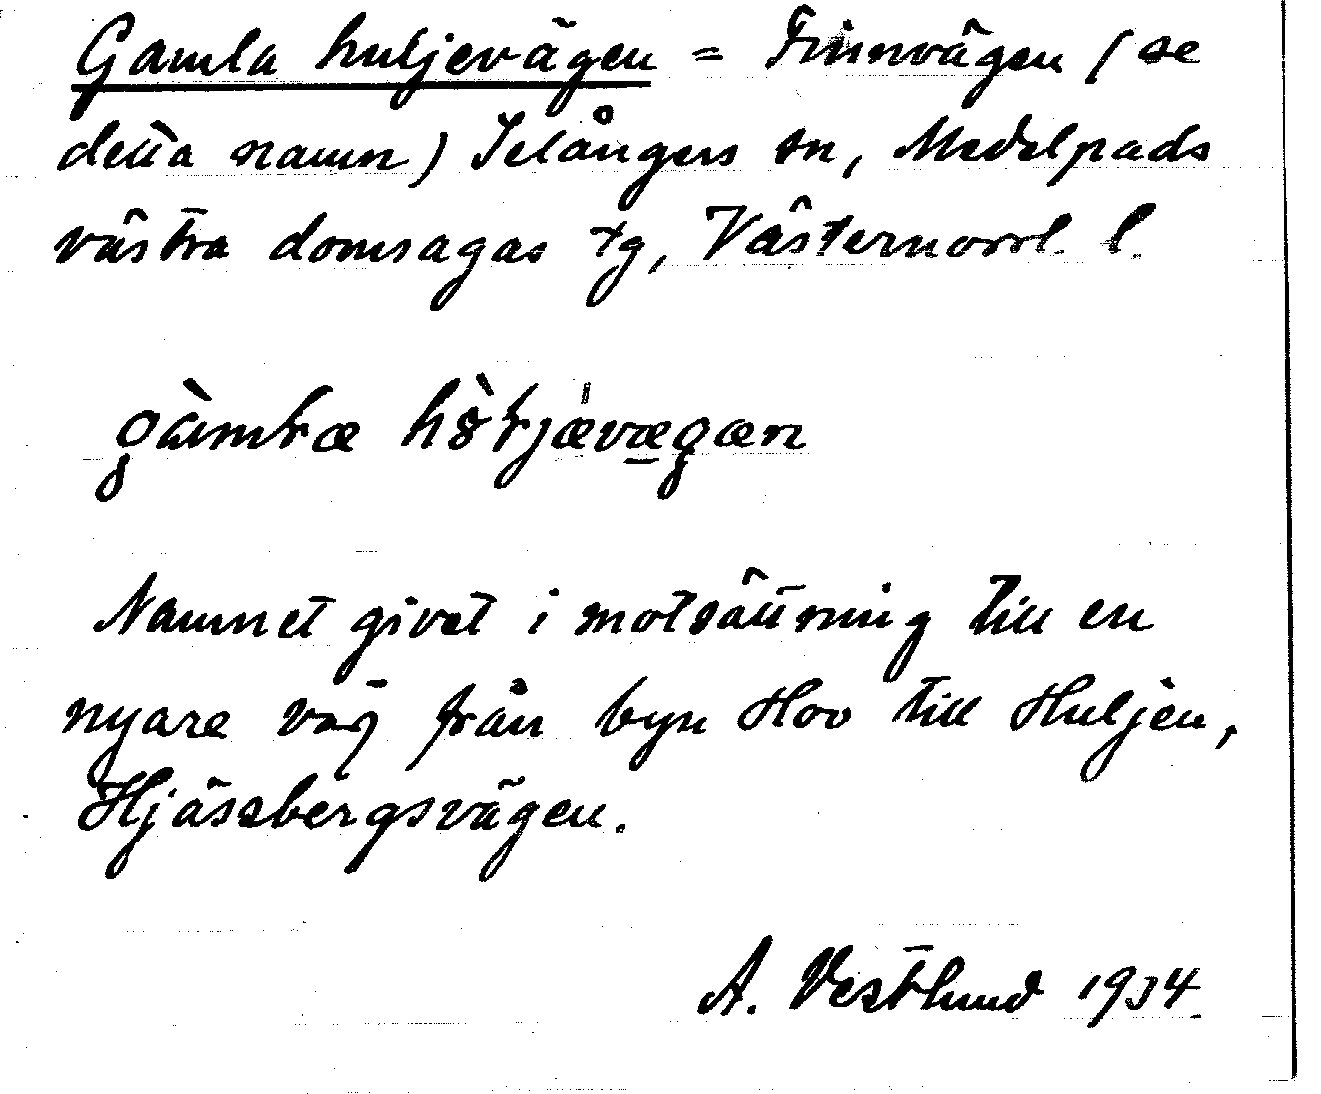 Gamla huljevägen = Finnvägen (se
detta namn) Selångers sn, Medelpads
västra domsagas tg, Västernorrl. l.
gàmɫæ hòɫjævægæn
Namnet givet i motsättning till en
nyare väg från byn Hov till Huljen,
Hjässbergsvägen.
A. Vestlund 1934.